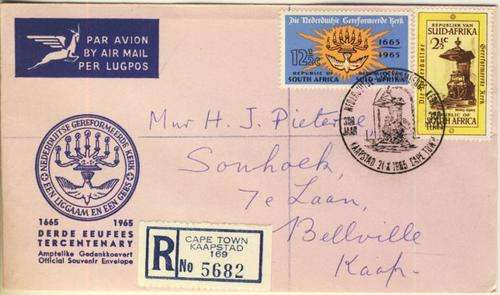 PAR AVION
BY AIR MAIL
PER LUGPOS
Die Nederduitse Gereformeerde Kerk
1665
1965
12½c
REPUBLIC OF SOUTH AFRICA
REPUBLIEK VAN SUID-AFRIKA
REPUBLIEK VAN
SUID-AFRIKA
2½c
Gereformeerde Kerk
REPUBLIC OF
SOUTH AFRICA
300
JAAR
KAAPSTAD 21 X 1965 CAPE TOWN
NEDERDUITSE GEREFORMEERDE KERK
EEN LIGGAAM EN EEN GEES
1665 1965
DERDE EEUFEES
TERCENTENARY
Amptelike Gedenkkoevert
Official Souvenir Envelope
Mnr H. J. Pieterse
Sonhoek
7e Laan,
Bellville
Kaap.
R
CAPE TOWN
KAAPSTAD
169
No 5682